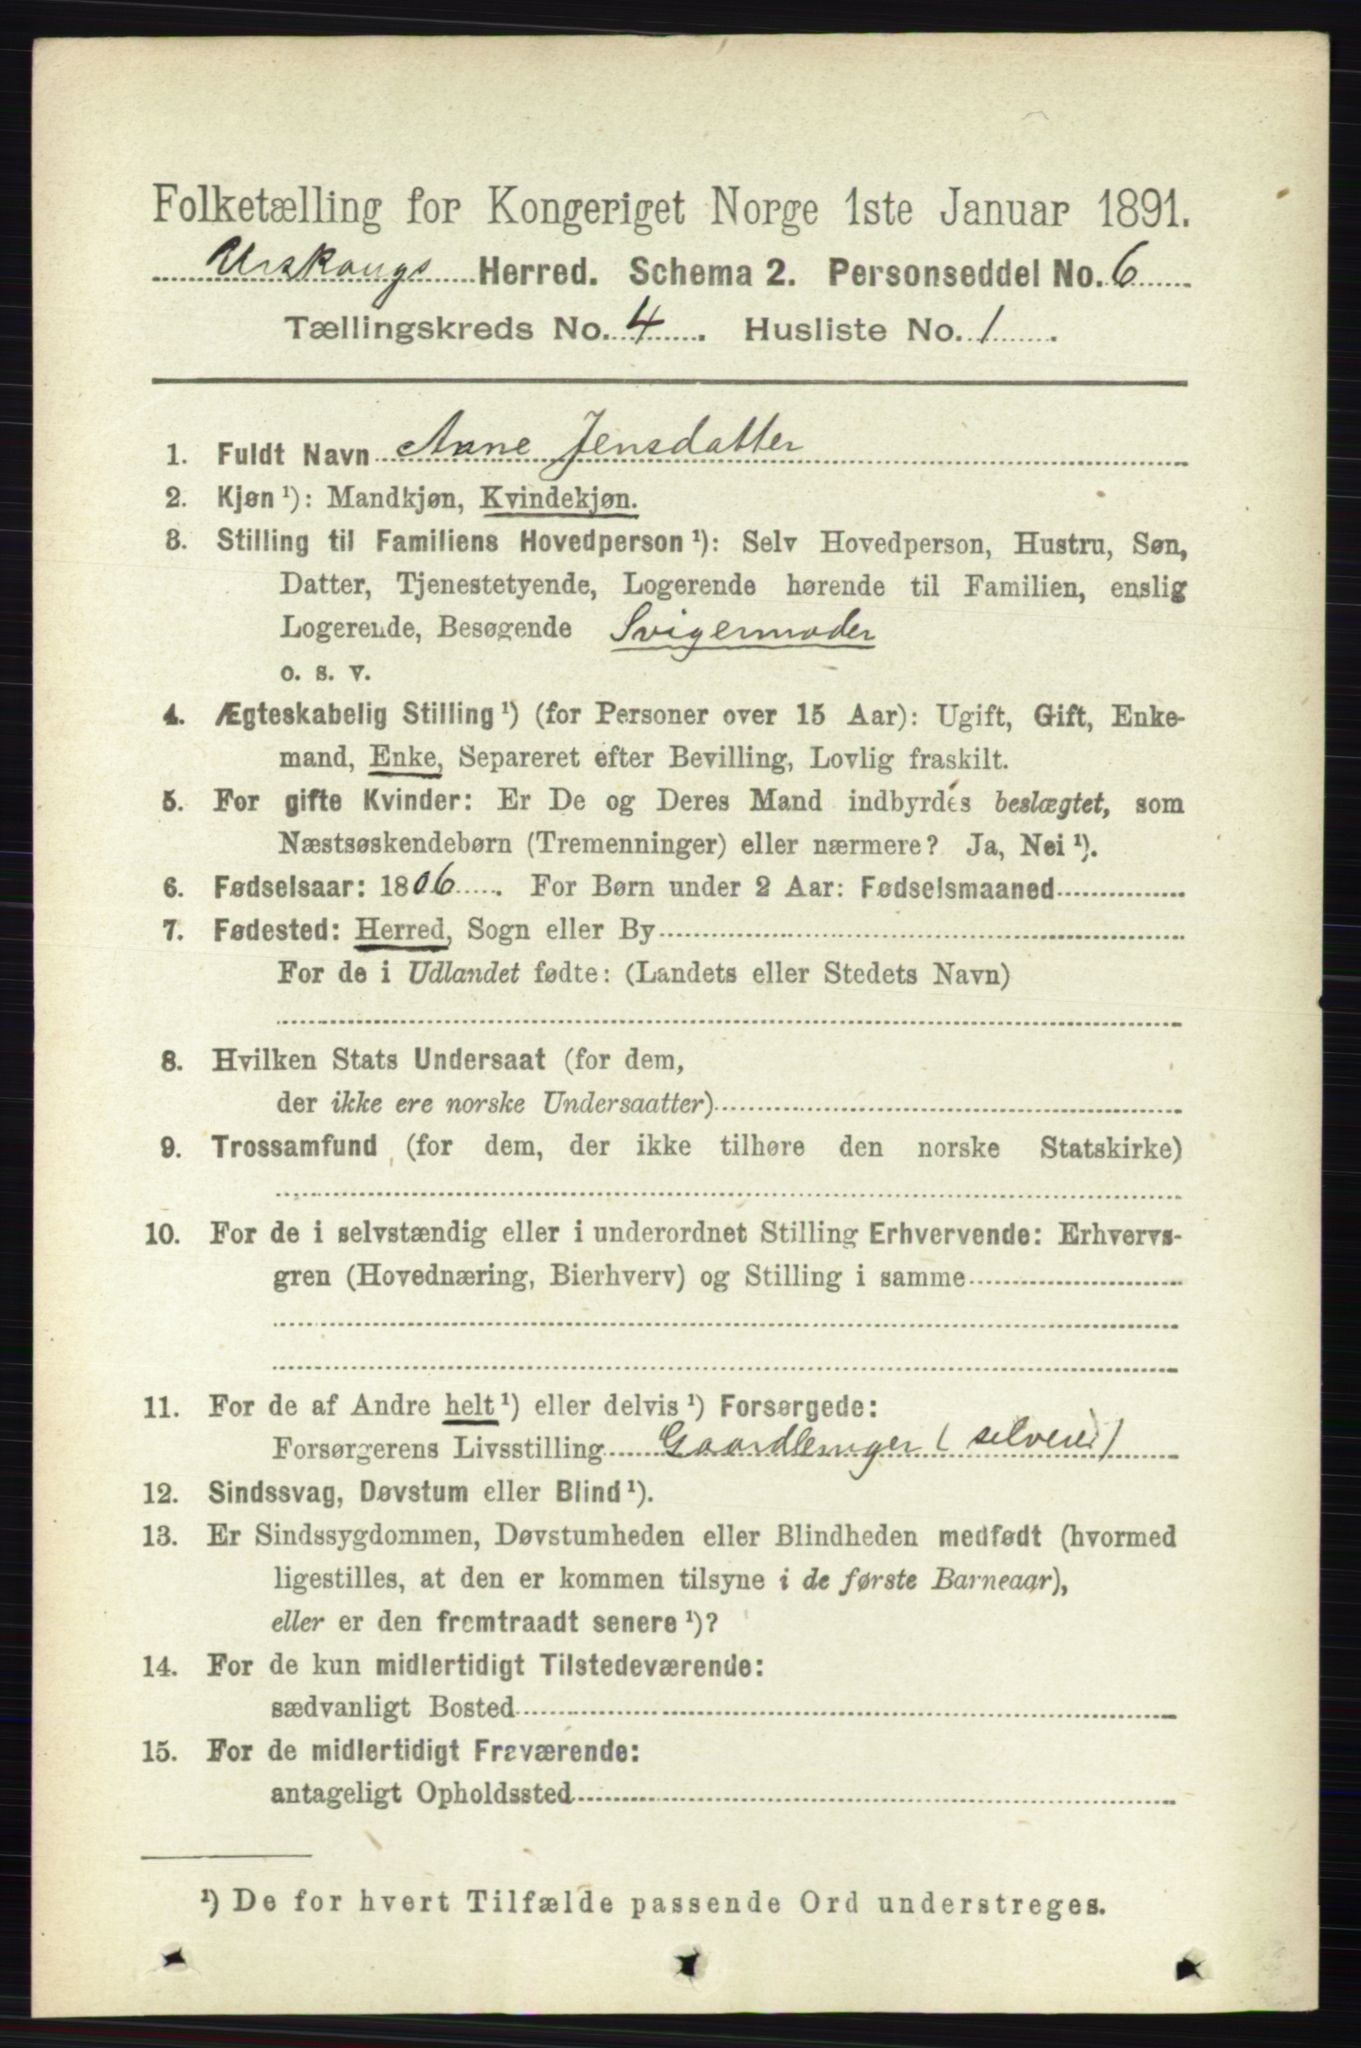 Folketælling for Kongeriget Norge 1ste Januar 1891.
Urskougs Herred. Schema 2. Personseddel No. 6
Tællingskreds No. 4. Husliste No. 1.
1. Fuldt Navn Anne Jensdatter
2. Kjøn¹): Mandkjøn, Kvindekjøn.
3. Stilling til Familiens Hovedperson¹): Selv Hovedperson, Hustru, Søn,
Datter, Tjenestetyende, Logerende hørende til Familien, enslig
Logerende, Besøgende Svigermoder
o. s. v.
4. Ægteskabelig Stilling¹) (for Personer over 15 Aar): Ugift, Gift, Enke-
mand, Enke, Separeret efter Bevilling, Lovlig fraskilt.
5. For gifte Kvinder: Er De og Deres Mand indbyrdes beslægtet, som
Næstsøskendebørn (Tremenninger) eller nærmere? Ja, Nei¹).
6. Fødselsaar: 1806. For Børn under 2 Aar: Fødselsmaaned
7. Fødested: Herred, Sogn eller By
For de i Udlandet fødte: (Landets eller Stedets Navn)
8. Hvilken Stats Undersaat (for dem,
der ikke ere norske Undersaatter)
9. Trossamfund (for dem, der ikke tilhøre den norske Statskirke)
10. For de i selvstændig eller i underordnet Stilling Erhvervende: Erhvervs-
gren (Hovednæring, Bierhverv) og Stilling i samme
11. For de af Andre helt¹) eller delvis¹) Forsørgede:
Forsørgerens Livsstilling Gaardbruger (selveier)
12. Sindssvag, Døvstum eller Blind¹).
13. Er Sindssygdommen, Døvstumheden eller Blindheden medfødt (hvormed
ligestilles, at den er kommen tilsyne i de første Barneaar),
eller er den fremtraadt senere¹)?
14. For de kun midlertidigt Tilstedeværende:
sædvanligt Bosted
15. For de midlertidigt Fraværende:
antageligt Opholdssted
¹) De for hvert Tilfælde passende Ord understreges.